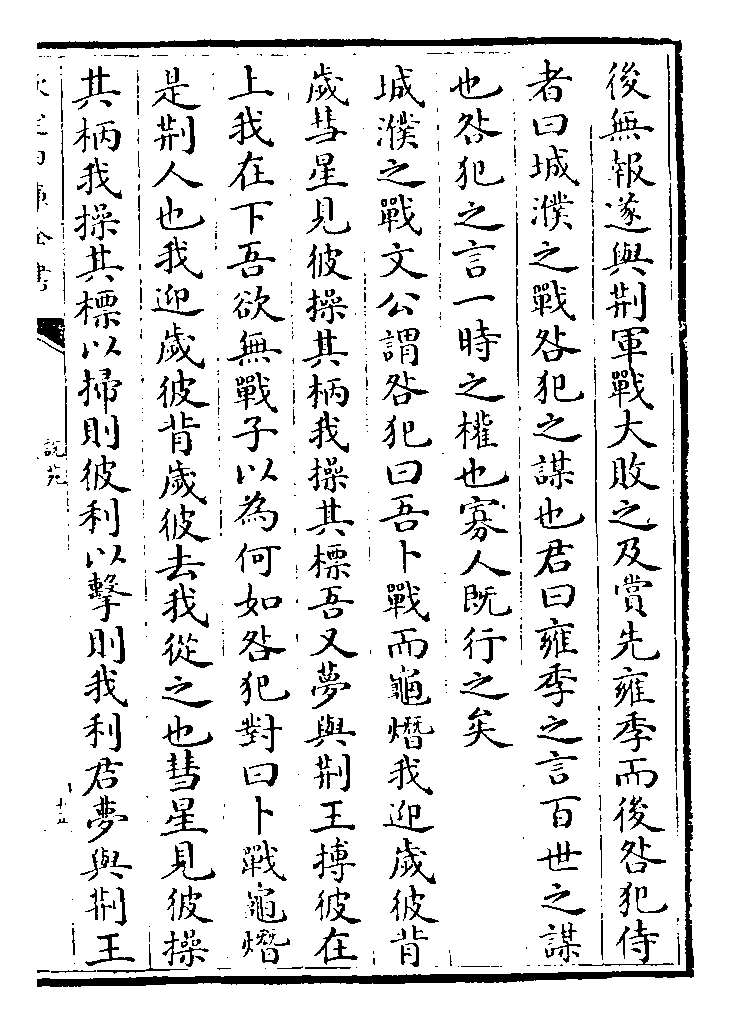 後無報遂與荆軍戰大敗之及賞先雍季而後咎犯侍
者曰城濮之戰咎犯之謀也君曰雍季之言百世之謀
也咎犯之言一時之權也寡人既行之矣
城濮之戰文公謂咎犯曰吾卜戰而龜熸我迎歲彼背
歲彗星見彼操其柄我操其標吾又夢與荆王搏彼在
上我在下吾欲無戰子以為何如咎犯對曰卜戰龜熸
是荆人也我迎歲彼背歲彼去我從之也彗星見彼操
其柄我操其標以掃則彼利以擊則我利君夢與荆王
說苑
十五